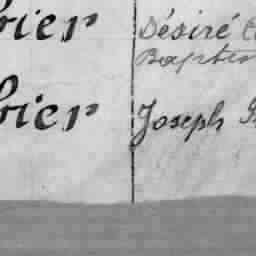 bier Désiré
Baptis
bier Joseph